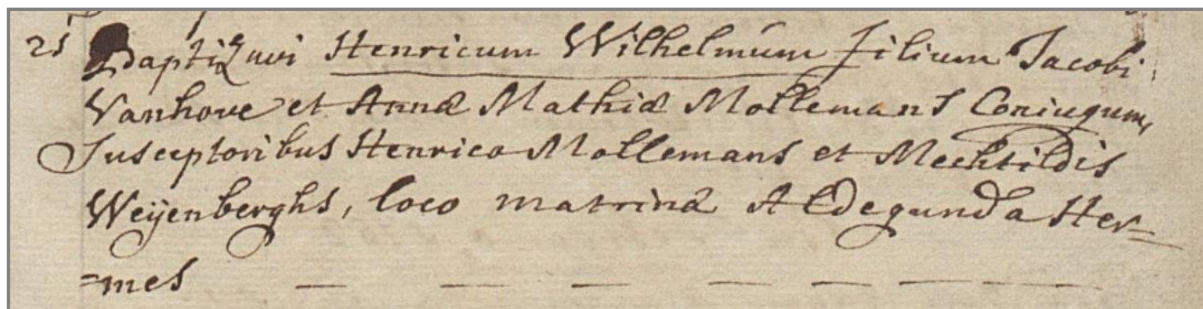 21 Baptizavi Henricum Wilhelmum filium Jacobi
Vanhove et Annæ Mathiæ Mollemans Coniugum,
Susceptoribus Henrico Mollemans et Mechtildis
Weÿenberghs, loco matrinæ Aldegunda Her=
=mes — — — — — — —